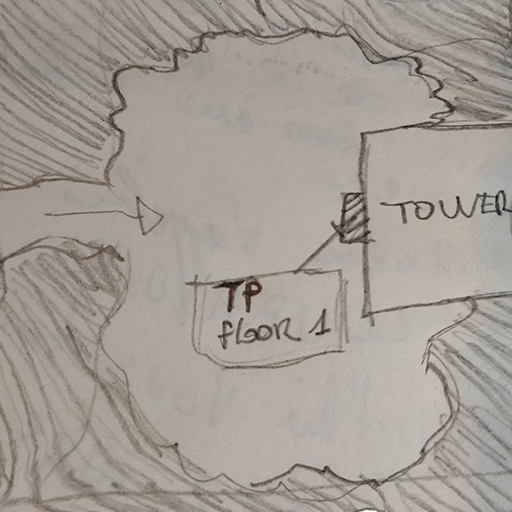 TOWER
TP
floor 1